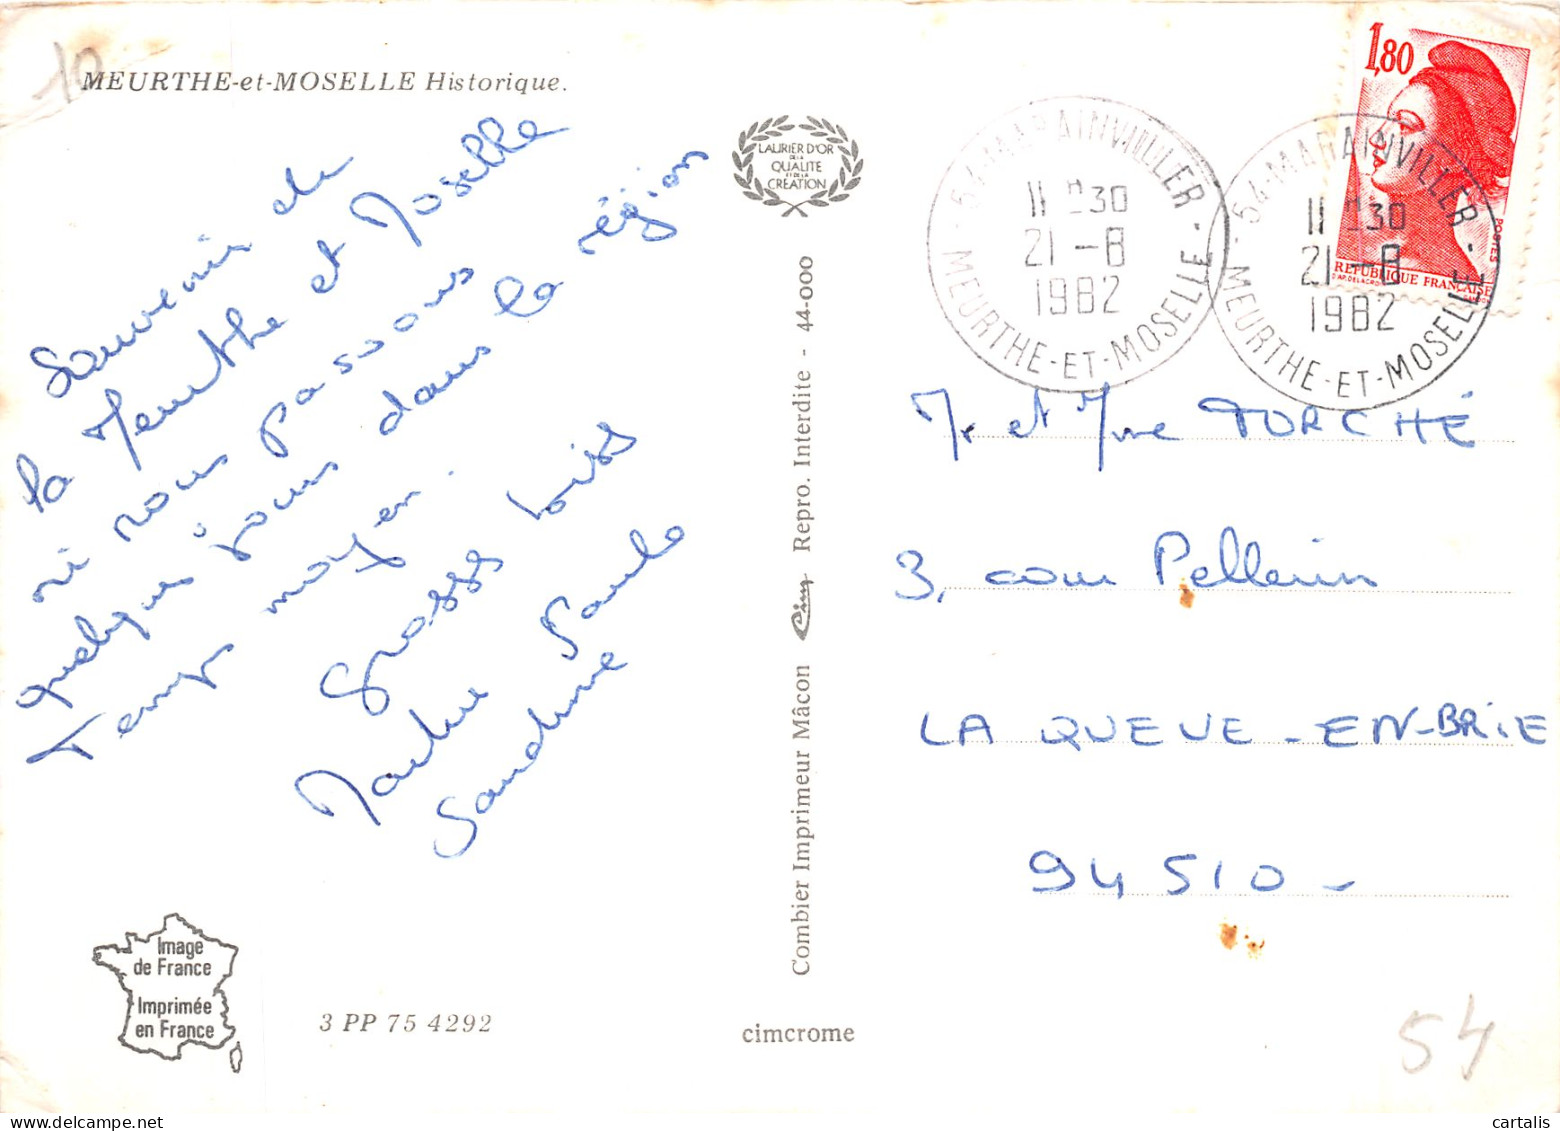 10
MEURTHE-et-MOSELLE Historique.
Souvenir de
la Meurthe et Moselle
où nous passons
quelques jours dans la région
Temps moyen.
Grosses bises
Paule
Sandrine
LAURIER D'OR
DE LA
QUALITE
ET DE LA
CREATION
Combier Imprimeur Mâcon Cim Repro. Interdite - 44-000
54-MARAINVILLER -
11 H 30
21 -8
1982
MEURTHE-ET-MOSELLE -
54-MARAINVILLER -
11 H 30
21 -8
1982
MEURTHE-ET-MOSELLE -
1,80
POSTES
REPUBLIQUE FRANÇAISE
D'AP. DELACROIX
Mr et Mme TORCHÉ
3, cour Pellerin
LA QUEUE-EN-BRIE
94 510 -
Image
de France
Imprimée
en France
3 PP 75 4292
cimcrome
54
cartalis